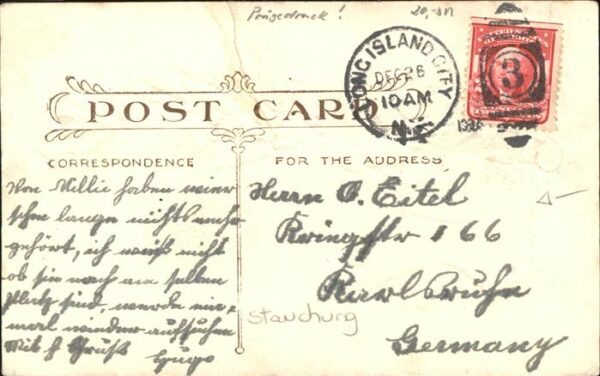 Prägedruck!
20,-DM
LONG ISLAND CITY
DEC 26
10 AM
N.Y.
3
POST CARD
CORRESPONDENCE
FOR THE ADDRESS
Von Millie haben wir
schon lange nichts mehr
gehört, ich weiß nicht
ob sie noch am selben
Platz sind, werde sie
mal wieder aufsuchen
Mit Gruß
Hugo
Herrn O. Eitel
Ringstr 166
Karlsruhe
Germany
Stauchung